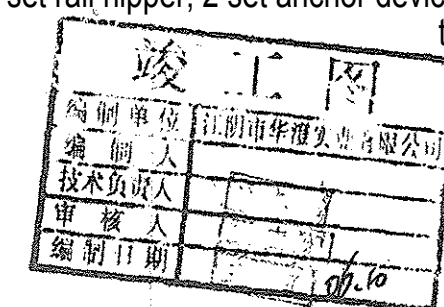 set rail nipper, 2 set anchor devic
t
竣工图
编制单位 江阴市华澄实业有限公司
编制人
技术负责人
审核人
编制日期 06.10